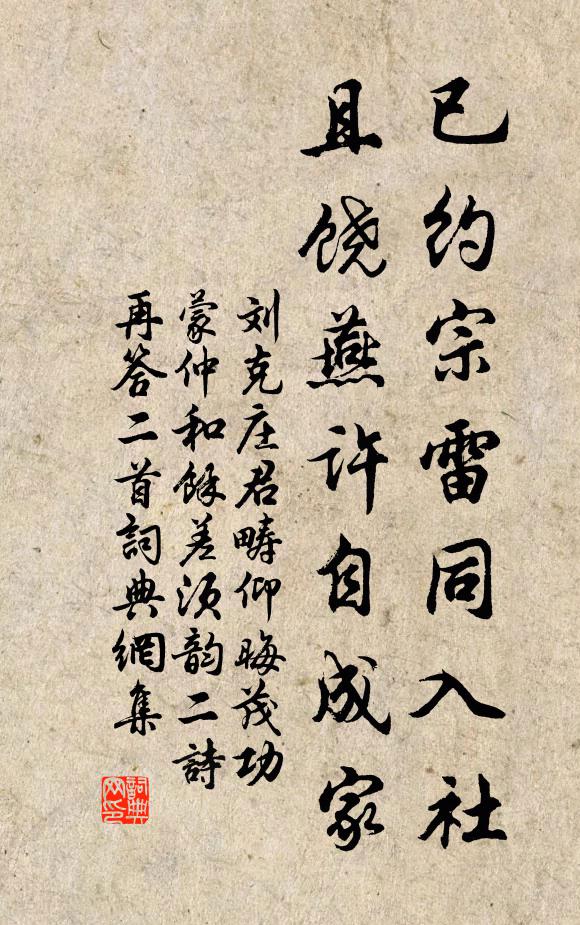 已约宗雷同入社
且饶燕许自成家
刘克庄君畴仰晦茂功
蒙仲和馀差湏韵二詩
再答二首詞典網集
詞典网印